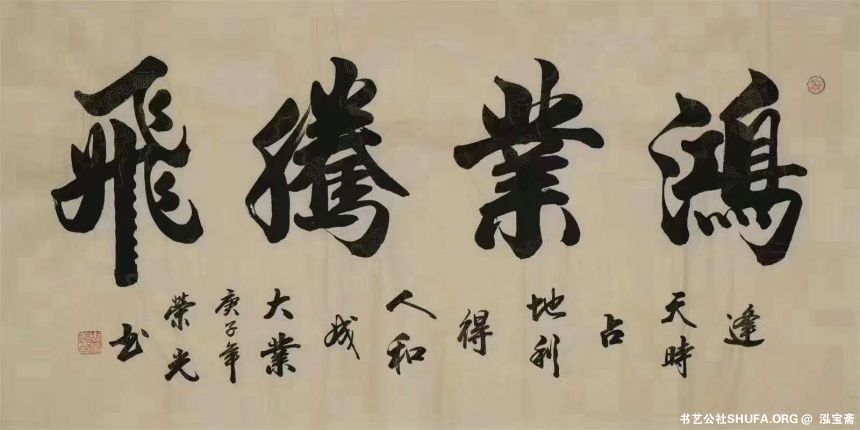 鴻業騰飛
逢
天時
占
地利
得
人和
成
大業
庚子年
榮光
书
书艺公社SHUFA.ORG @ 泓宝斋